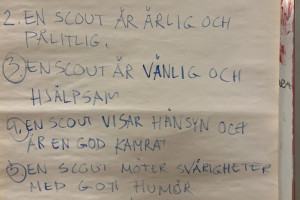 2. EN SCOUT ÄR ÄRLIG OCH
PÅLITLIG.
3 EN SCOUT ÄR VÄNLIG OCH
HJÄLPSAM
4. EN SCOUT VISAR HÄNSYN OCH
ÄR EN GOD KAMRAT
5 EN SCOUT MÖTER SVÅRIGHETER
MED GOTT HUMÖR